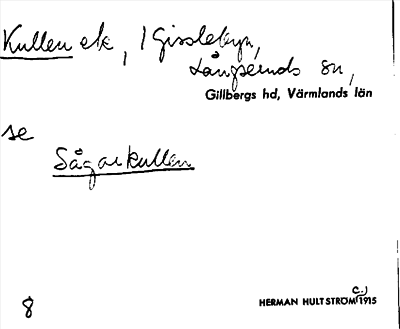 Kullen etc, i Gisslebyn,
Långseruds sn,
Gillbergs hd, Värmlands län
se
Sågarkullen
8
c.)
HERMAN HULTSTRÖM 1915